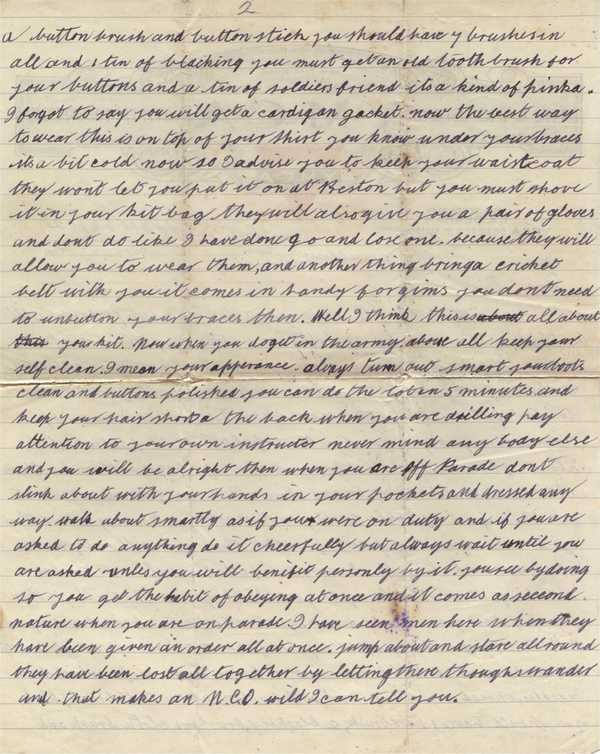 2
a button brush and button stick you should have 7 brushes in
all and 1 tin of blacking you must get an old tooth brush for
your buttons and a tin of soldiers friend its a kind of pinka.
I forgot to say you will get a cardigan gacket. now the best way
to wear this is on top of your shirt you know under your braces
its a bit cold now so I advise you to keep your waistcoat
they wont let you put it on at Beston but you must shove
it in your kit bag they will also give you a pair of gloves
and dont do like I have done go and lose one. because they will
allow you to wear them, and another thing bring a cricket
belt with you it comes in handy for gims you dont need
to unbutton your braces then. Well I think this is about all about
this your kit. Now when you do get in the army. above all keep your
self clean. I mean your apperance. always turn out smart your boots
clean and buttons polished you can do the lot in 5 minutes. and
keep your hair short a the back when you are drilling pay
attention to your own instructor never mind any body else
and you will be alright then when you are off Parade dont
slink about with your hands in your pockets and dressed any
way. walk about smartly as if you were on duty and if you are
asked to do anything do it cheerfully but always wait until you
are asked unles you will benifit personly by it. you see by doing
so you get the habit of obeying at once and it comes as second
nature when you are on parade I have seen men here when they
have been given an order all at once. jump about and stare all round
they have been lost all together by letting there thoughs wander
and that makes an N.C.O. wild I can tell you.